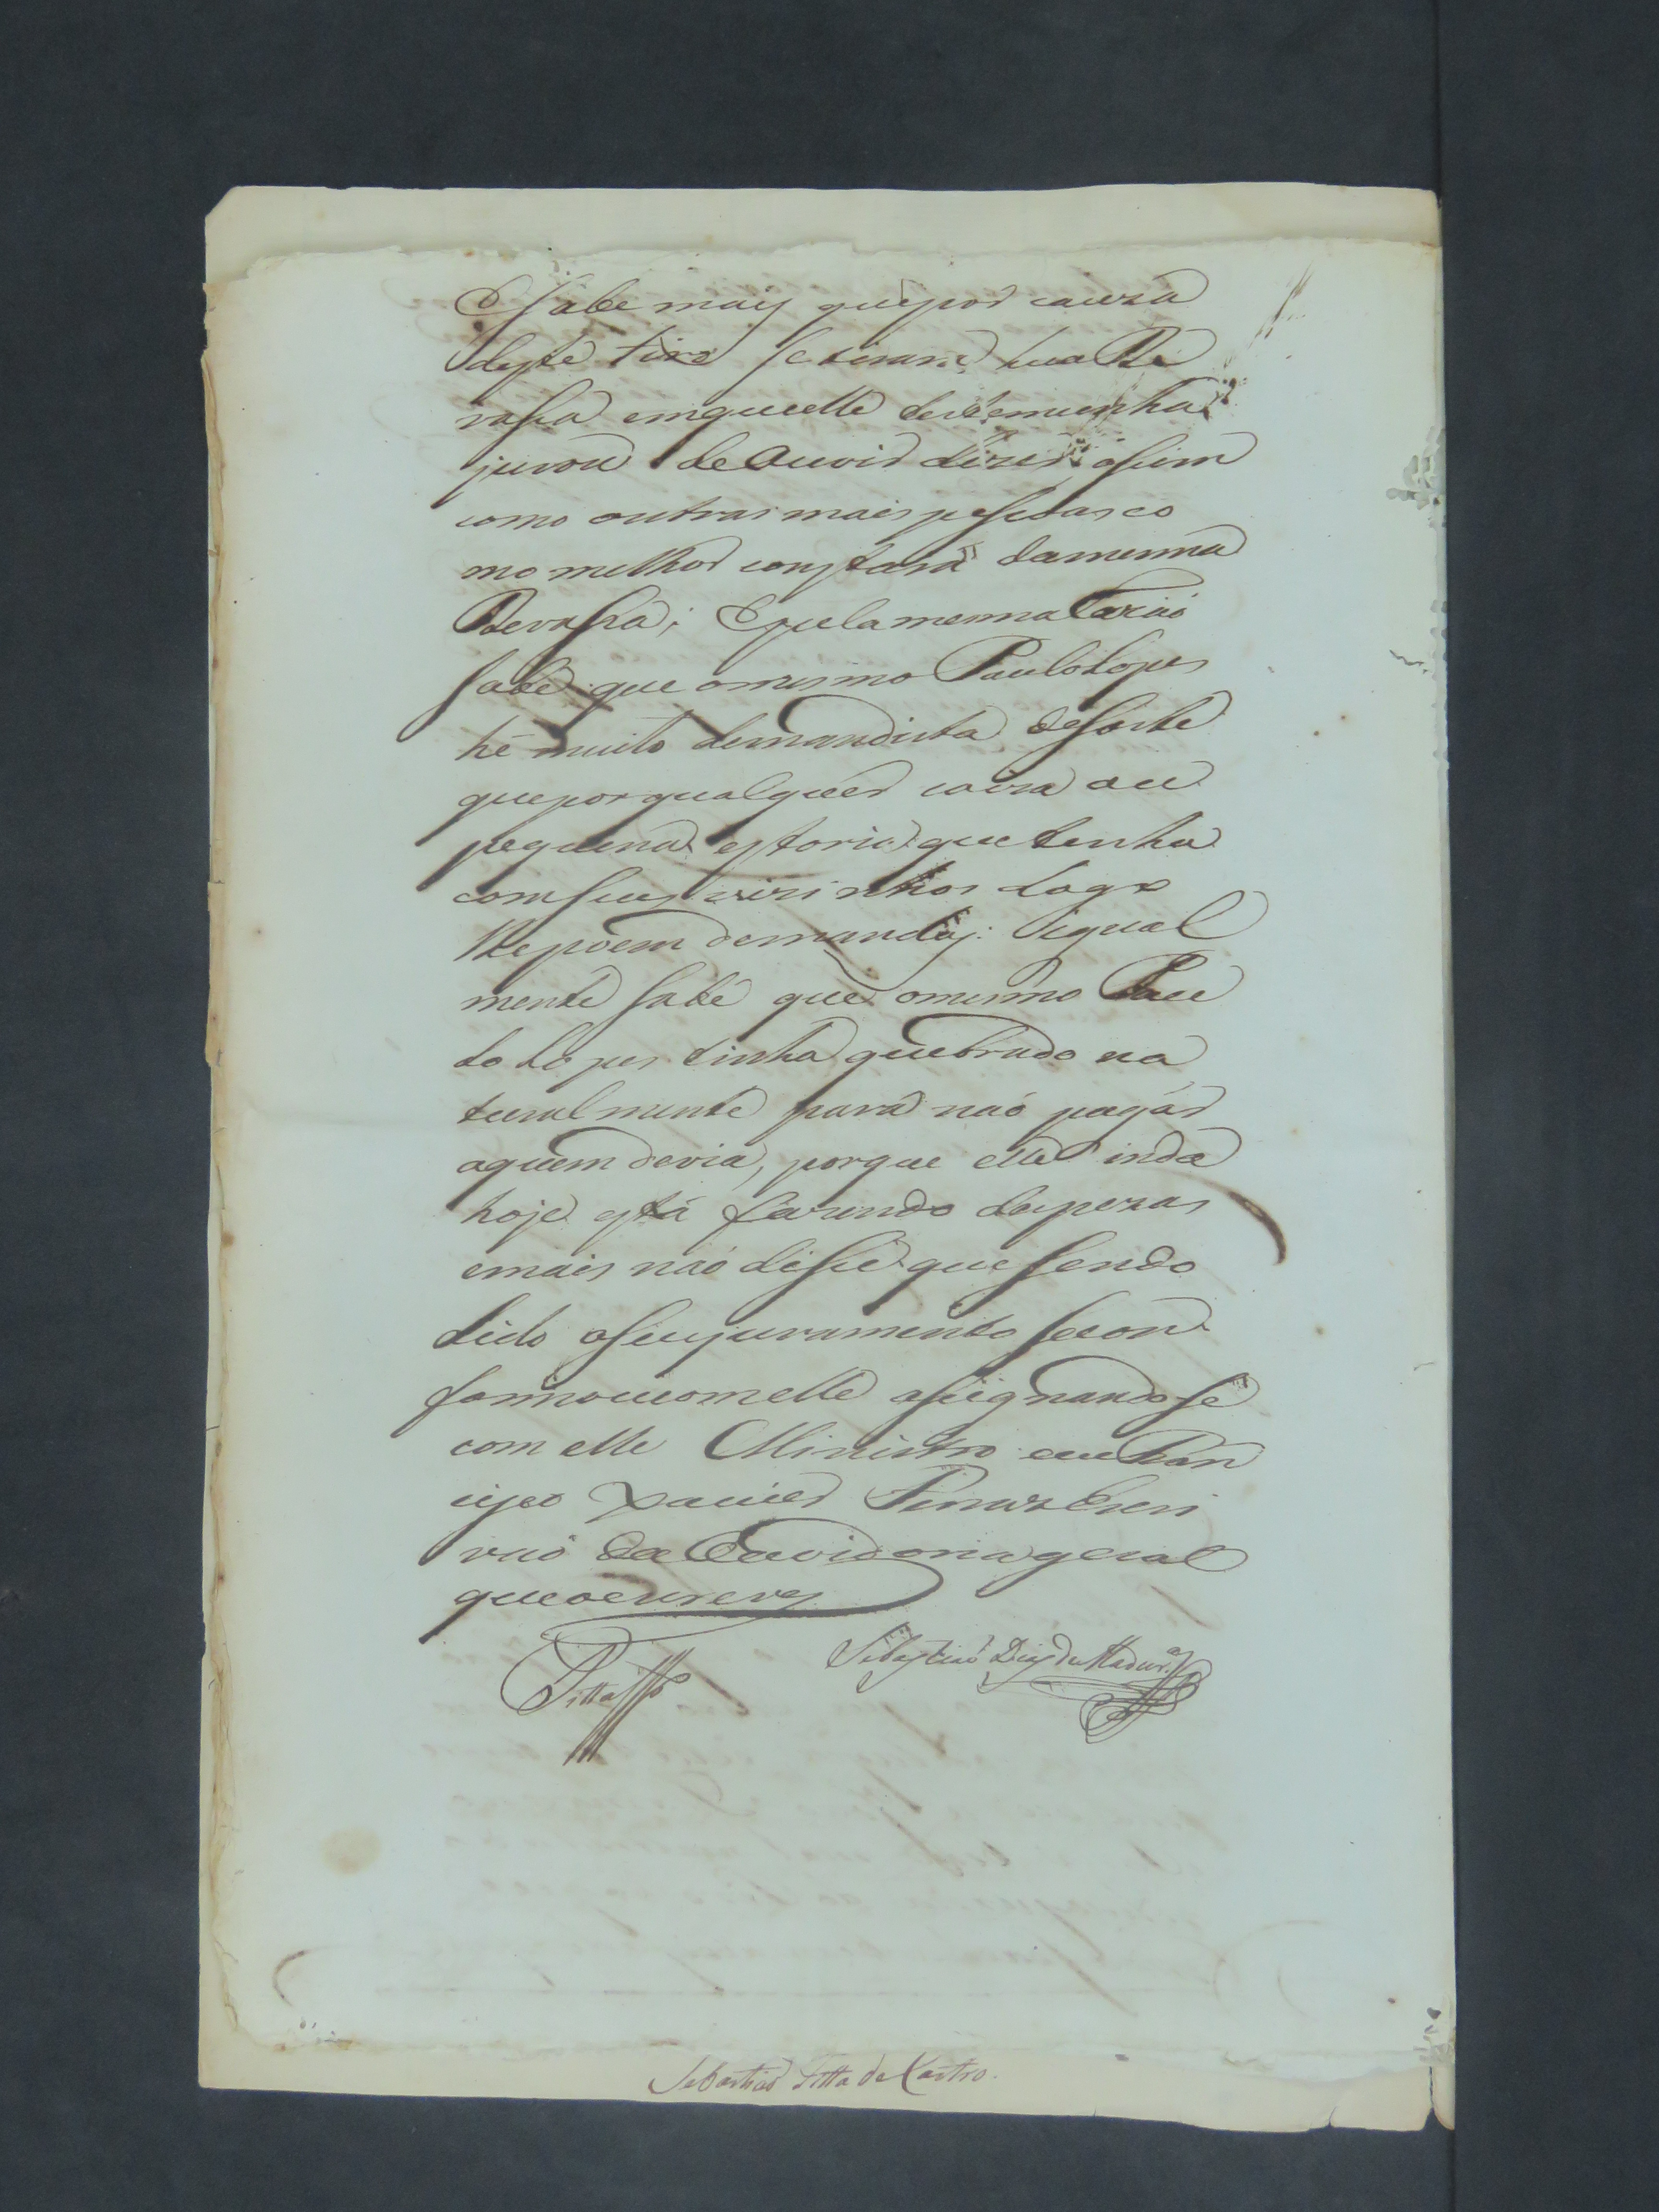 E sabe mais que por cauza
deste tiro se tirara hua De
vassa em que elle testemunha
jurou de Ouvir dizer assim
como outras mais pessoas co
mo melhor constará da mesma
Devassa; E pela mesma Razaó
sabe que o mesmo Paulo Lopes
hé muito demandista de sorte
que por qualquer couza ou
pequena estoria que tenha
com seus vizinhos logo
lhe poem demandas: Igual
mente sabe que o mesmo Pau
lo Lopes tinha quebrado na
turalmente para naó pagar
a quem devia, porque elle inda
hoje está fazendo despezas
e mais naó disse que sendo
lido o seu juramento se con
formou com elle assignandose
com elle Ministro eu Fran
cisco Xavier Ferraz Escri
vaó da Ouvidoria geral
que o escrevy
Pitta
Sebastiaó Dias da Madur.ª
Sebastião Pitta de Castro.